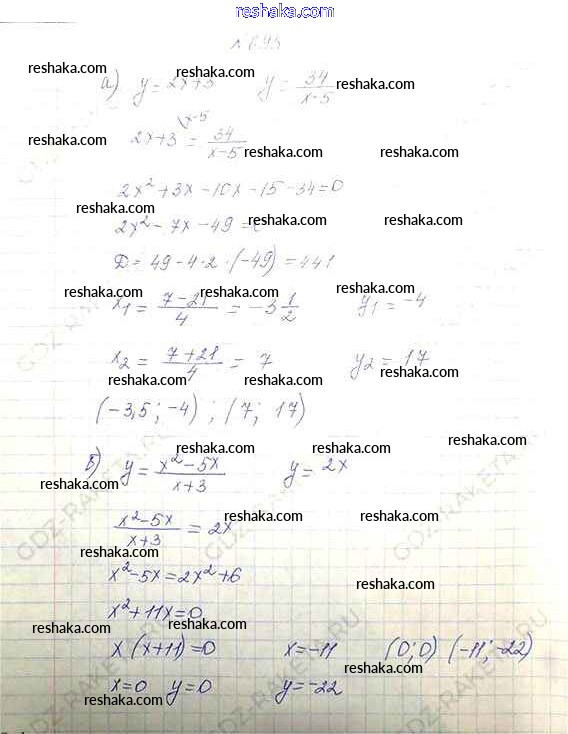 reshaka.com
№ 695
reshaka.com reshaka.com reshaka.com
а) y = 2x+3 y = 34/(x-5)
\x-5
2x+3 = 34/(x-5)
reshaka.com reshaka.com reshaka.com
2x² + 3x - 10x - 15 - 34 = 0
reshaka.com reshaka.com reshaka.com
2x² - 7x - 49 = 0
Д = 49 - 4·2·(-49) = 441
reshaka.com reshaka.com reshaka.com
x₁ = (7-21)/4 = -3 1/2 y₁ = -4
x₂ = (7+21)/4 = 7 y₂ = 17
reshaka.com reshaka.com reshaka.com
(-3,5; -4); (7; 17)
reshaka.com reshaka.com reshaka.com
б) y = (x²-5x)/(x+3) y = 2x
reshaka.com reshaka.com reshaka.com
(x²-5x)/(x+3) = 2x
reshaka.com reshaka.com reshaka.com
x²-5x = 2x²+6
reshaka.com reshaka.com reshaka.com
x²+11x=0
reshaka.com reshaka.com reshaka.com
x(x+11)=0 x=-11 (0;0) (-11;-22)
reshaka.com
x=0 y=0 y=-22
reshaka.com reshaka.com
GDZ-RAKETA.RU